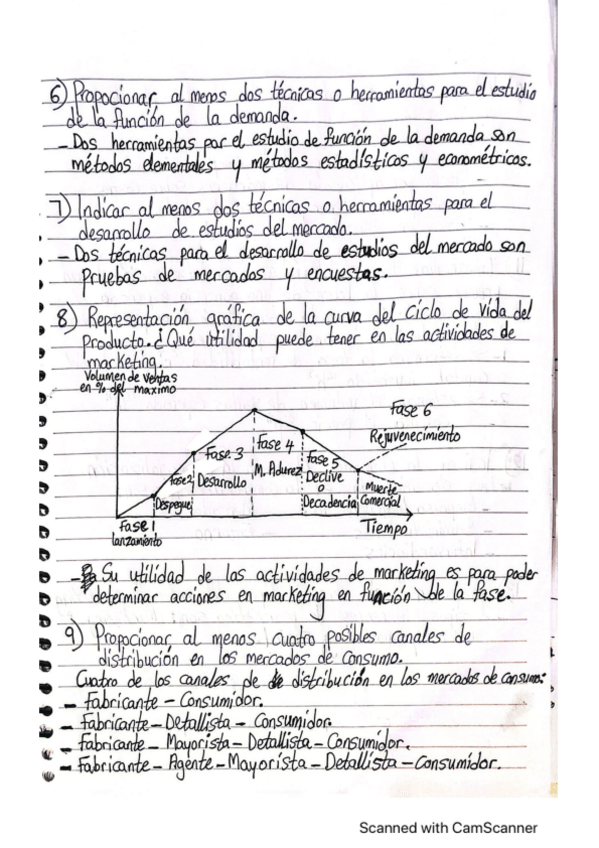 6) Propocionar al menos dos técnicas o herramientas para el estudio
de la función de la demanda.
- Dos herramientas por el estudio de función de la demanda son
métodos elementales y métodos estadísticos y econométricos.
7) Indicar al menos dos técnicas o herramientas para el
desarollo de estudios del mercado.
- Dos técnicas para el desarollo de estudios del mercado son
Pruebas de mercados y encuestas.
8) Representación gráfica de la curva del ciclo de vida del
Producto. ¿Qué utilidad puede tener en las actividades de
marketing.
Volumen de ventas
en % del maximo
Fase 6
Rejuvenecimiento
Fase 4
M. Adurez
Fase 3
Desarrollo
Fase 5
Declive
o
Decadencia
Fase 2
Despegue
Muerte
Comercial
Fase 1
lanzamiento
Tiempo
- Su utilidad de las actividades de marketing es para poder
determinar acciones en marketing en función de la fase.
9) Propocionar al menos cuatro posibles canales de
distribución en los mercados de consumo.
Cuatro de los canales de distribución en los mercados de consumo:
- Fabricante - Consumidor.
- Fabricante - Detallista - Consumidor.
- Fabricante - Mayorista - Detallista - Consumidor.
- Fabricante - Agente - Mayorista - Detallista - Consumidor.
Scanned with CamScanner